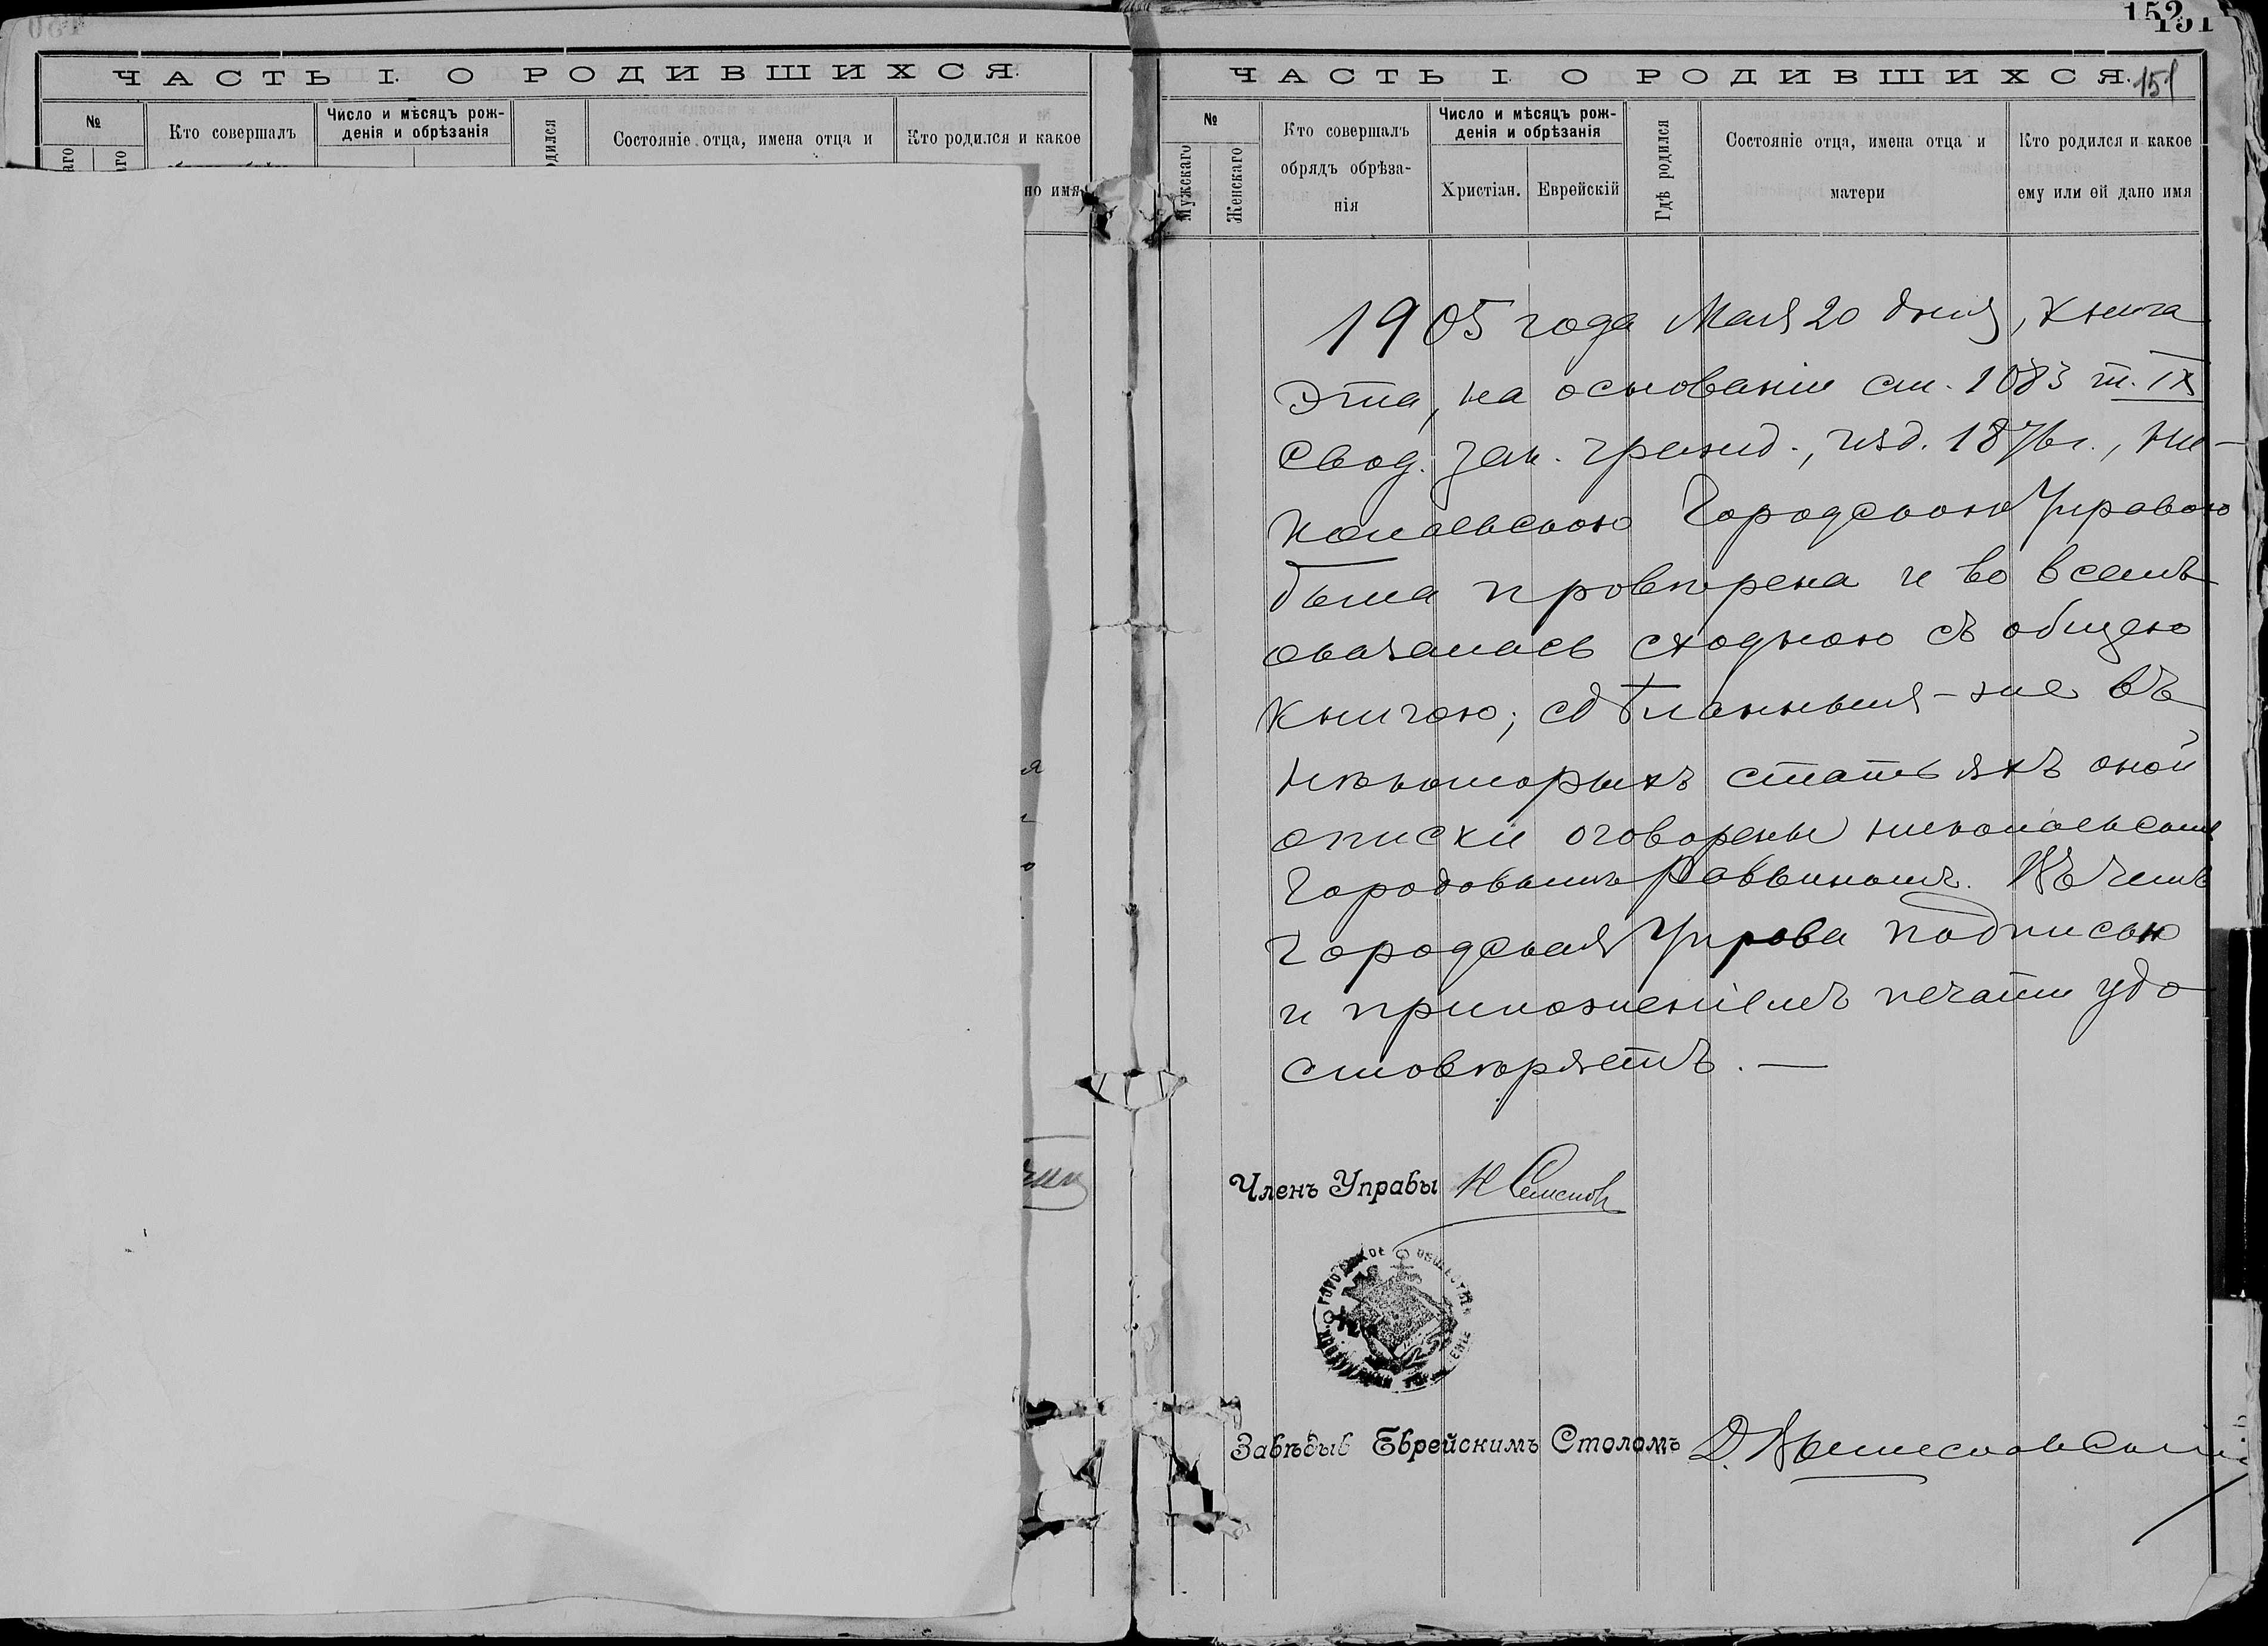 ЧАСТЬ I. О РОДИВШИХСЯ.
№
Кто совершалъ
Число и мѣсяцъ рож-
денія и обрѣзанія
Состояніе отца, имена отца и
Кто родился и какое
но имя
152
151
ЧАСТЬ I. О РОДИВШИХСЯ.
151
№
Мужскаго
Женскаго
Кто совершалъ
обрядъ обрѣза-
нія
Число и мѣсяцъ рож-
денія и обрѣзанія
Христіан.
Еврейскій
Гдѣ родился
Состояніе отца, имена отца и
матери
Кто родился и какое
ему или ей дано имя
1905 года Мая 20 дня, книга
эта, на основаніи ст. 1083 т. IX
Свод. Зак. гражд., изд. 1876 г., Ни-
колаевскою Городскою Управою
была провѣрена и во всемъ
оказалась сходною съ общею
книгою; сдѣланныя-же въ
нѣкоторыхъ статьяхъ оной
описки оговорены николаевскимъ
Городовымъ Раввиномъ. Въ чемъ
Городская Управа подписью
и приложеніемъ печати удо
стовѣряетъ. —
Членъ Управы
ГОРОДСКОЕ ОБЩЕСТВ.
Завѣдыв Еврейскимъ Столомъ